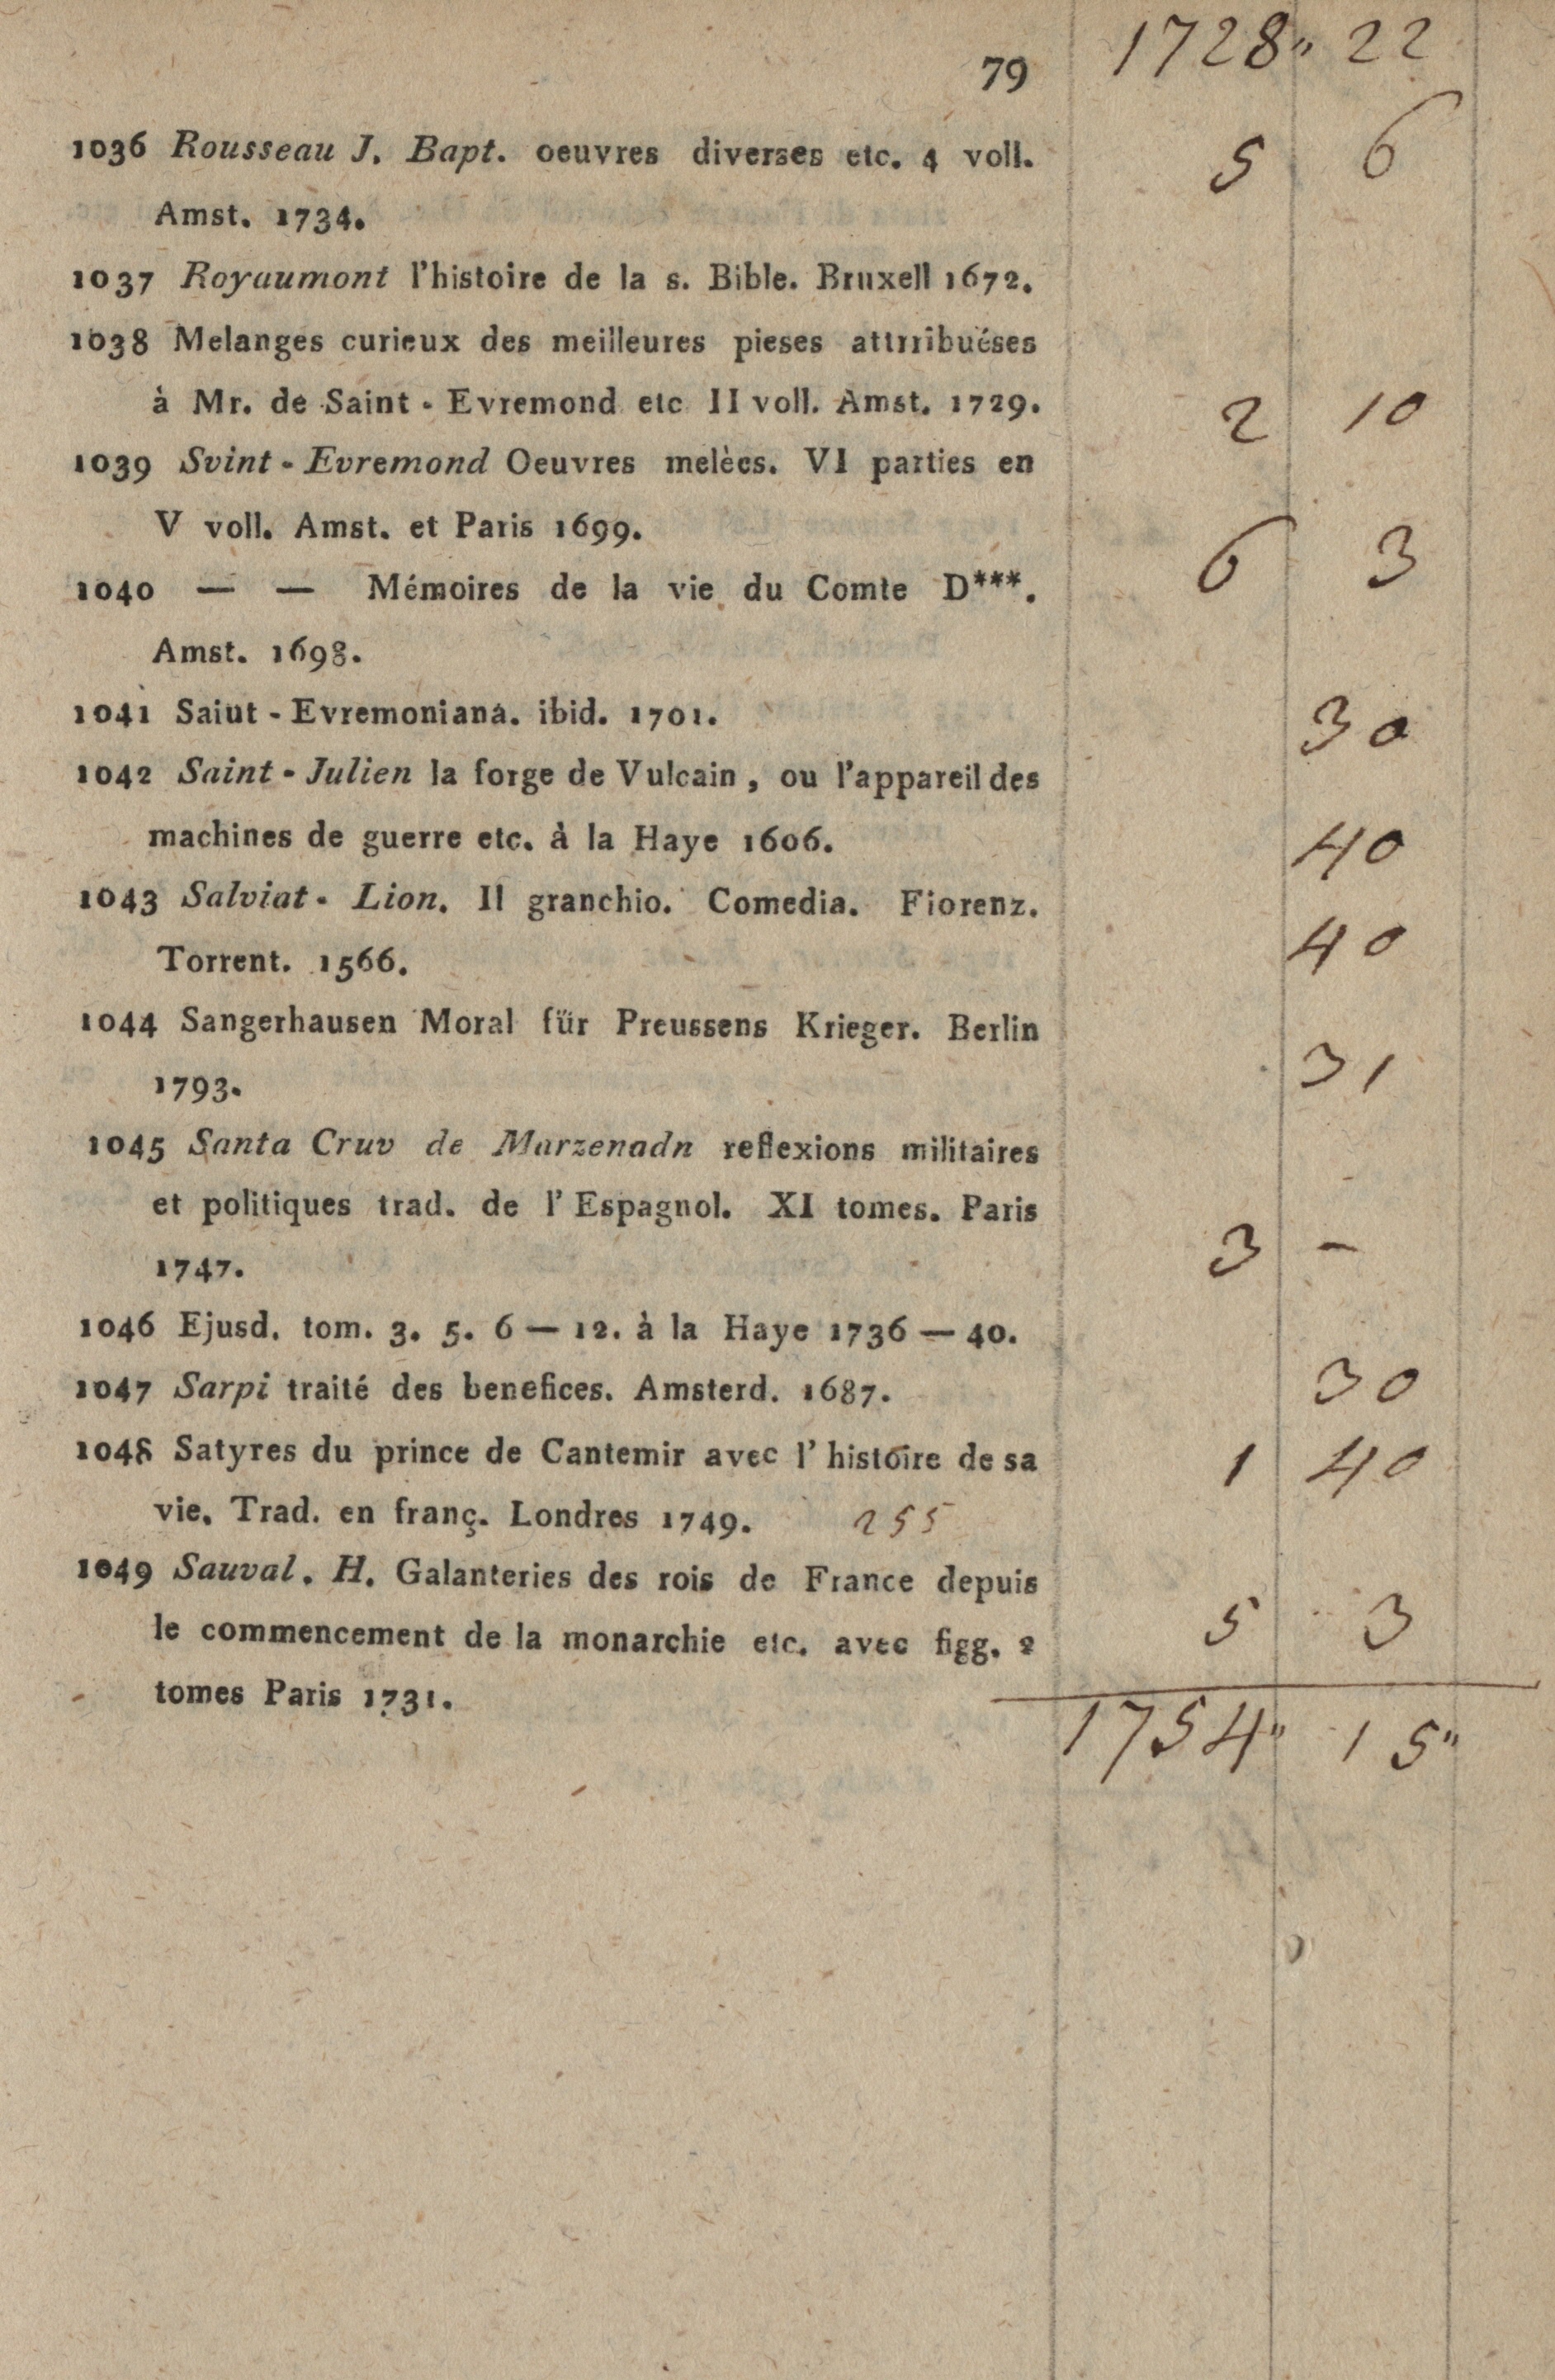 79 1728" 22
1036 Rousseau J. Bapt. oeuvres diverses etc. 4 voll. 5 6
Amst. 1734.
1037 Royaumont l'histoire de la s. Bible. Bruxell 1672.
1038 Melanges curieux des meilleures pieses attrribuéses
à Mr. de Saint - Evremond etc II voll. Amst. 1729. 2 10
1039 Svint - Evremond Oeuvres melèes. VI parties en
V voll. Amst. et Paris 1699. 6 3
1040 — — Mémoires de la vie du Comte D***.
Amst. 1698.
1041 Saiut - Evremoniana. ibid. 1701. 30
1042 Saint - Julien la forge de Vulcain, ou l'appareil des
machines de guerre etc. à la Haye 1606. 40
1043 Salviat - Lion. Il granchio. Comedia. Fiorenz. 40
Torrent. 1566.
1044 Sangerhausen Moral für Preussens Krieger. Berlin 31
1793.
1045 Santa Cruv de Marzenadn reflexions militaires
et politiques trad. de l' Espagnol. XI tomes. Paris 3 –
1747.
1046 Ejusd. tom. 3. 5. 6 — 12. à la Haye 1736 — 40.
1047 Sarpi traité des benefices. Amsterd. 1687. 30
1048 Satyres du prince de Cantemir avec l' histoire de sa 1 40
vie. Trad. en franç. Londres 1749. 255
1049 Sauval. H. Galanteries des rois de France depuis
le commencement de la monarchie etc. avec figg. 2 5 3
tomes Paris 1731.
1754" 15"